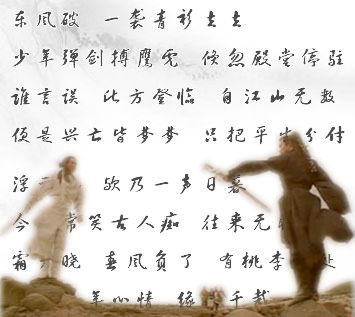 东风破 一袭青衫去去
少年弹剑搏鹰兔 倏忽殿堂停驻
谁言误 此方登临 自江山无数
便是兴亡皆梦梦 只把平生分付
浮 欸乃一声日暮
今 常笑古人痴 往来无
霜 晓 春风负了 有桃李 处
年心情 缘 千载